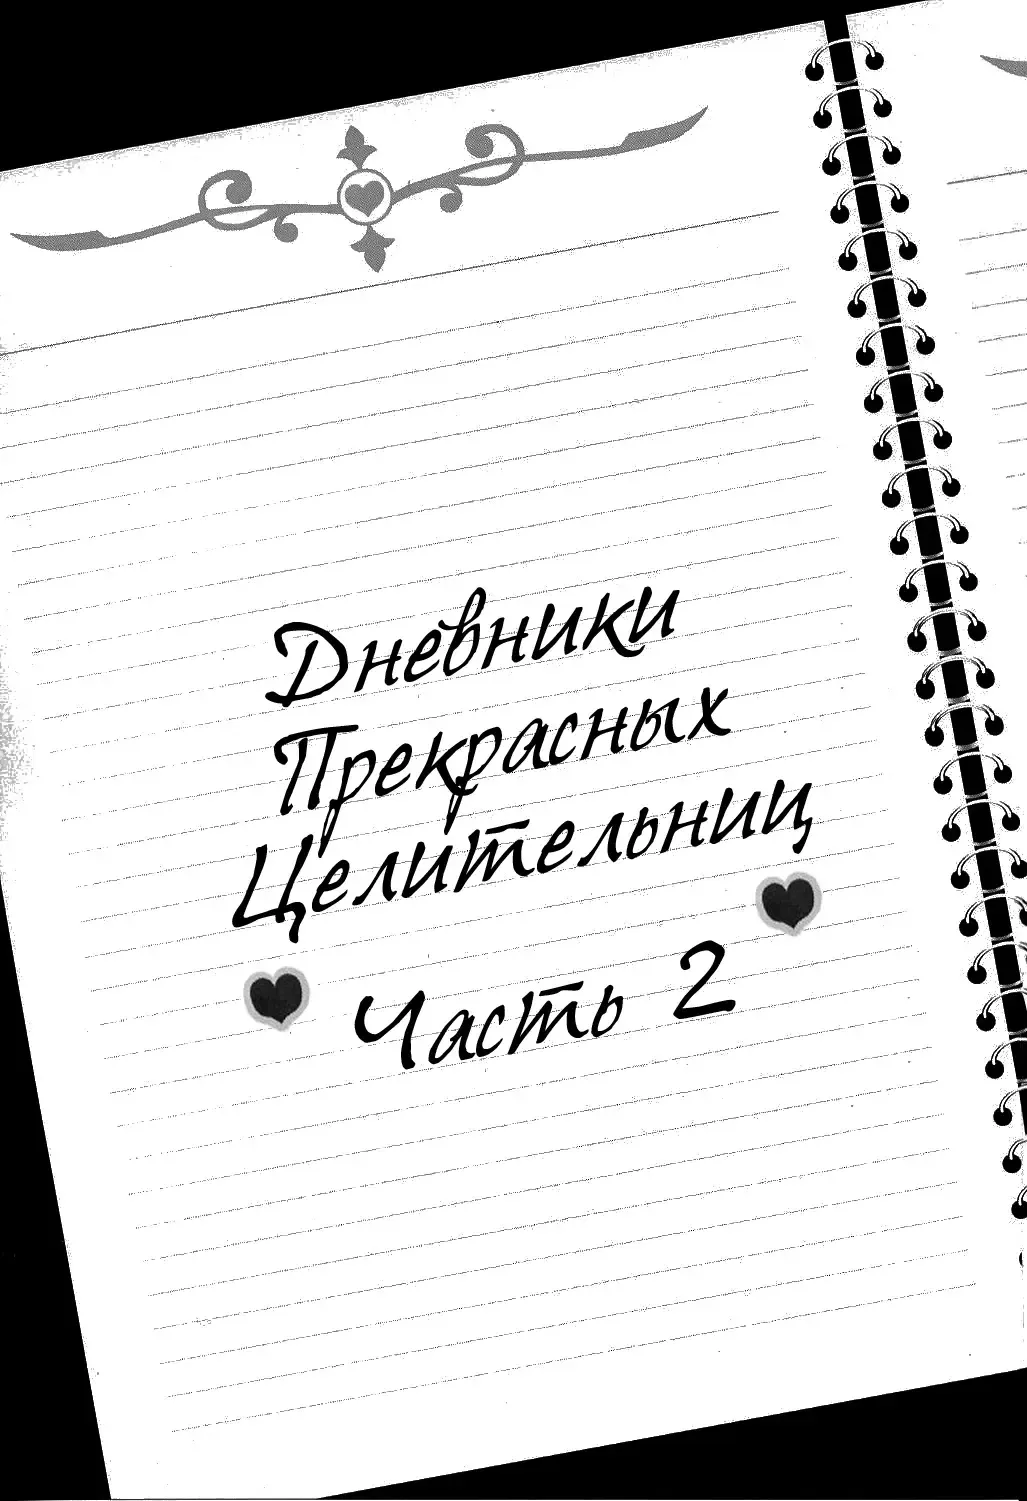 Дневники
Прекрасных
Целительниц
Часть 2